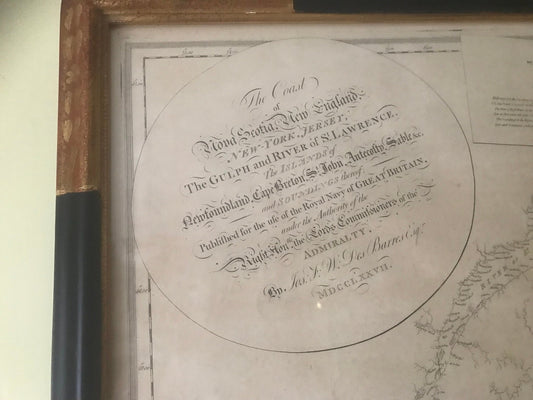 The Coast
of
Nova Scotia, New England,
NEW-YORK, JERSEY,
THE GULPH AND RIVER OF St. LAWRENCE.
The ISLANDS of
Newfoundland, Cape Breton, St. John, Antecosty, Sable &c.
and SOUNDINGS thereof
Published for the use of the Royal Navy of GREAT BRITAIN,
under the Authority of the
Right Hon. the Lords Commissioners of the
ADMIRALTY,
By, Jos. F. W. Des Barres Esqr.
MDCCLXXVII.
RIVER